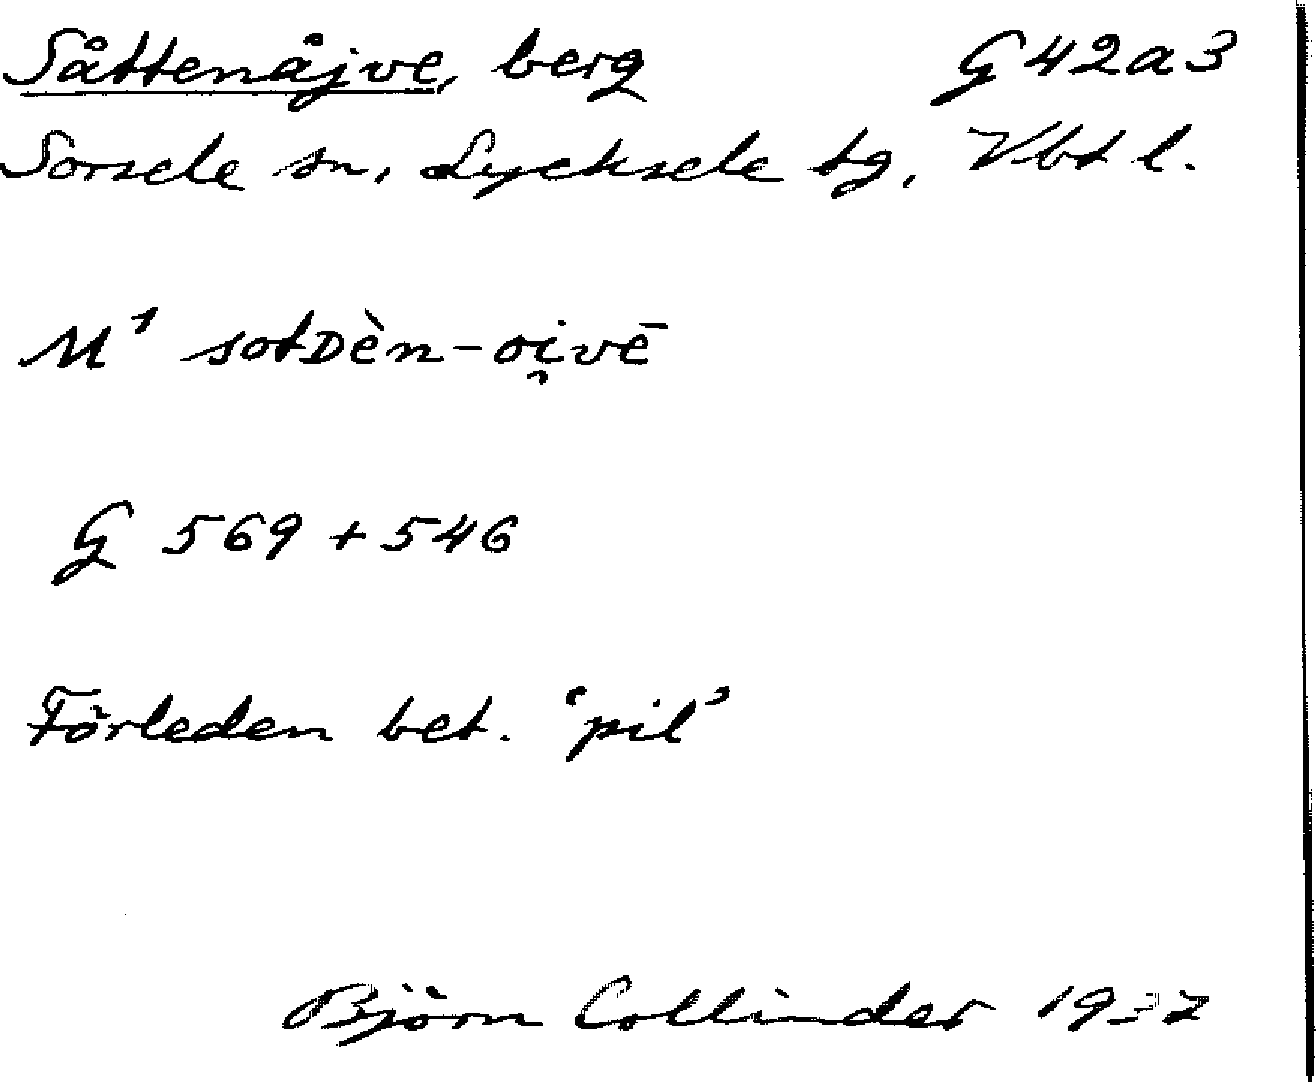 Såttenåjve, berg G42a3
Sorsele sn, Lycksele tg, Vbt l.
M¹ sotDèn-oi̯vē
G 569 + 546
Förleden bet. ‘pil’
Björn Collinder